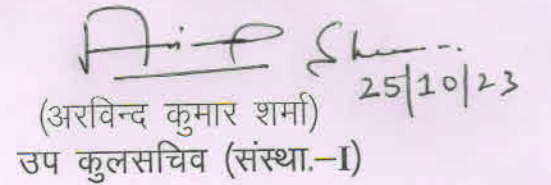 25/10/23
(अरविन्द कुमार शर्मा)
उप कुलसचिव (संस्था.–I)